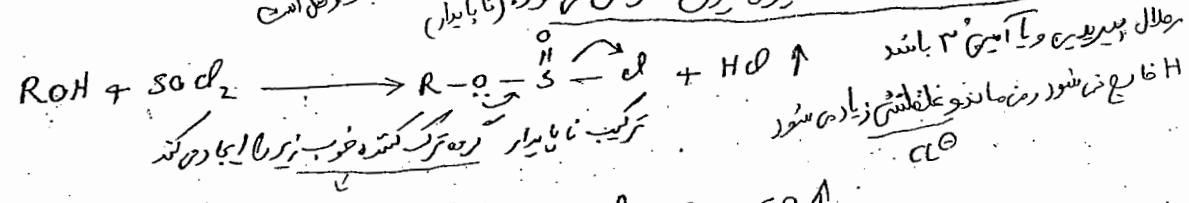 (ناپایدار)
حلال پیریدین و یا آمین ۳ْ باشد
ROH + SOCl₂ → R-O-S(=O)-Cl + HCl ↑
H خارج نمی شود و می ماند و غلظتش زیاد می شود
Cl⊖
ترکیب ناپایدار گروه ترک کننده خوب زیر را ایجاد می کند